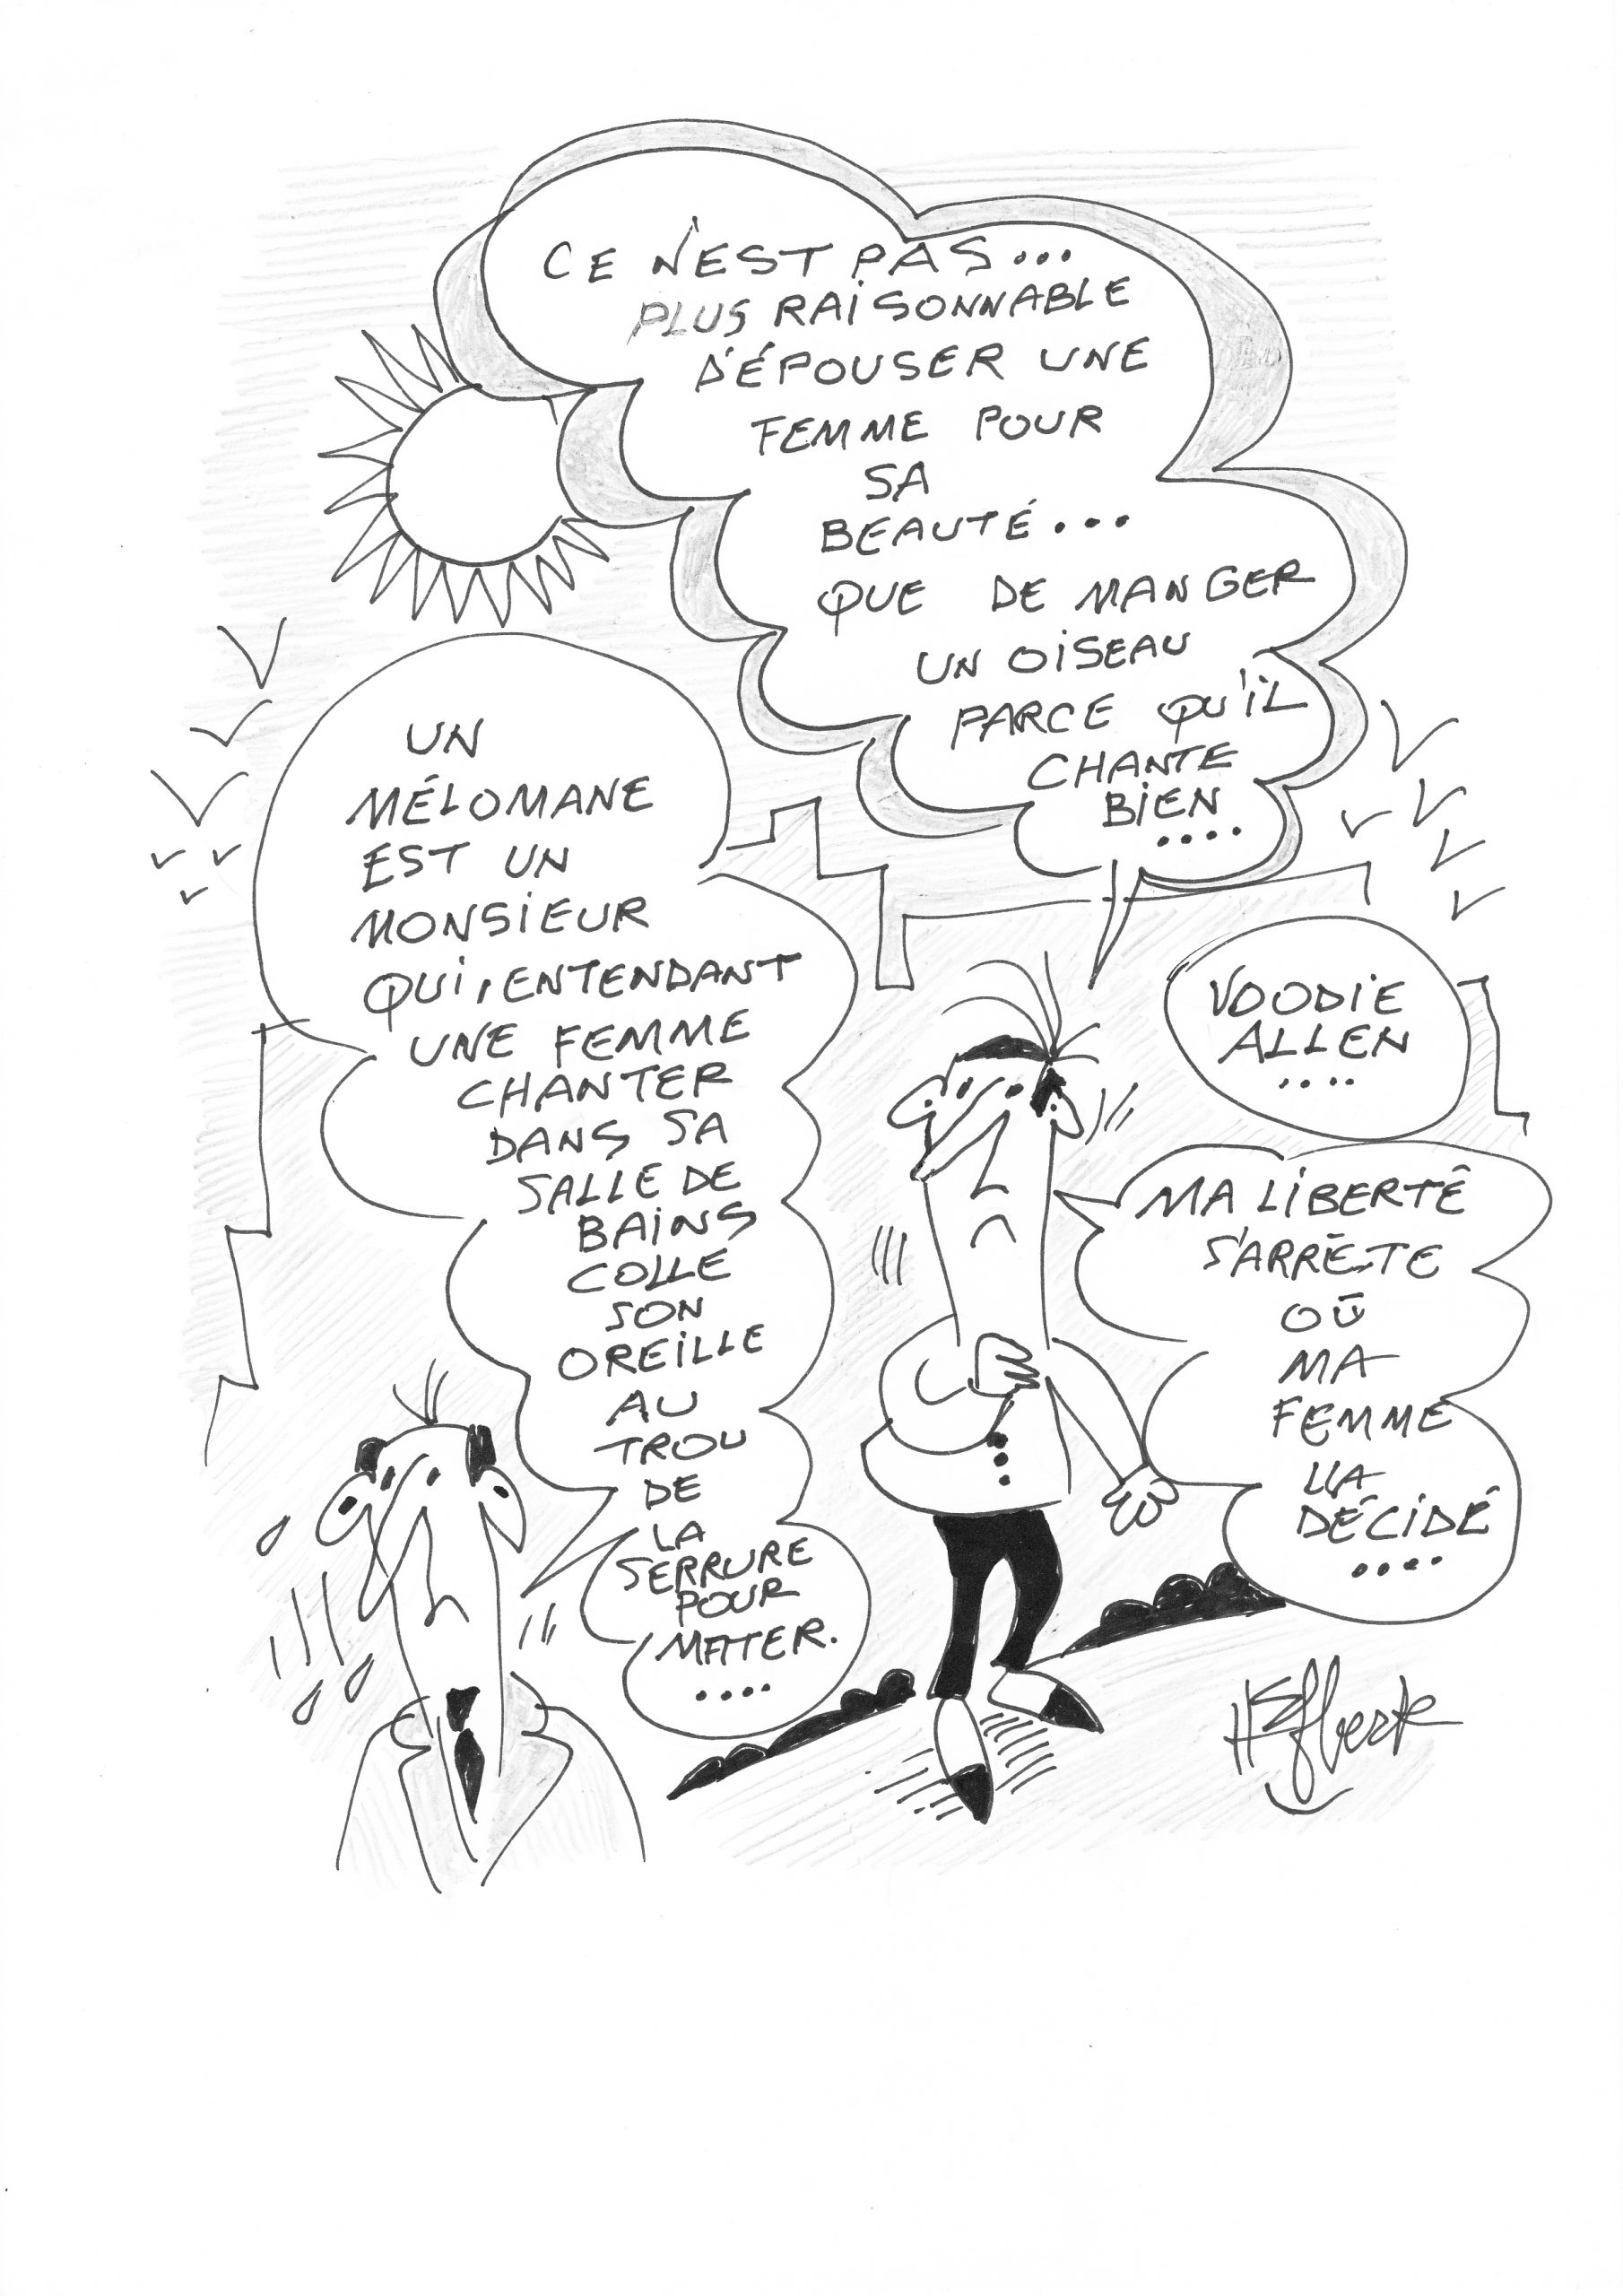 CE N'EST PAS...
PLUS RAISONNABLE
D'ÉPOUSER UNE
FEMME POUR
SA
BEAUTÉ...
QUE DE MANGER
UN OISEAU
PARCE QU'IL
CHANTE
BIEN
....
UN
MÉLOMANE
EST UN
MONSIEUR
QUI, ENTENDANT
UNE FEMME
CHANTER
DANS SA
SALLE DE
BAINS
COLLE
SON
OREILLE
AU
TROU
DE
LA
SERRURE
POUR
MATER.
....
VOODIE
ALLEN
....
MA LIBERTÉ
S'ARRÊTE
OÙ
MA
FEMME
L'A
DÉCIDÉ
....